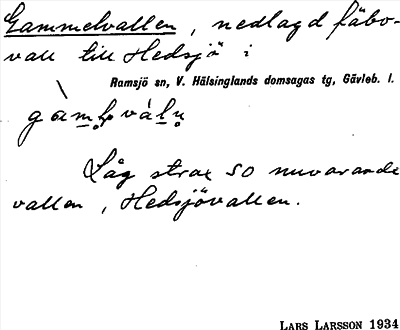 Gammelvallen, nedlagd fäbo-
vall till Hedsjö i
Ramsjö sn, V. Hälsinglands domsagas tg, Gävleb. l.
Låg strax SO nuvarande
vallen, Hedsjövallen.
LARS LARSSON 1934